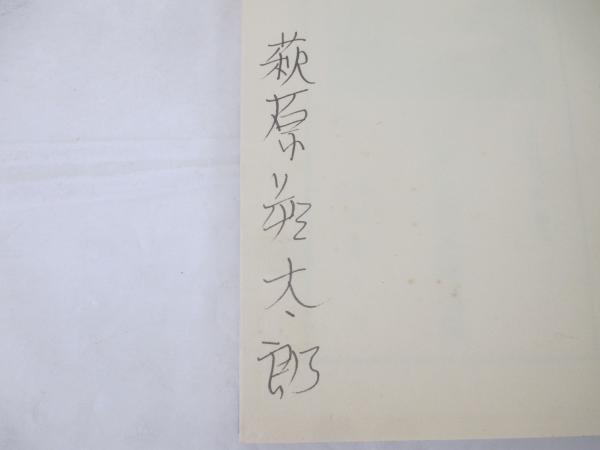 萩原朔太郎